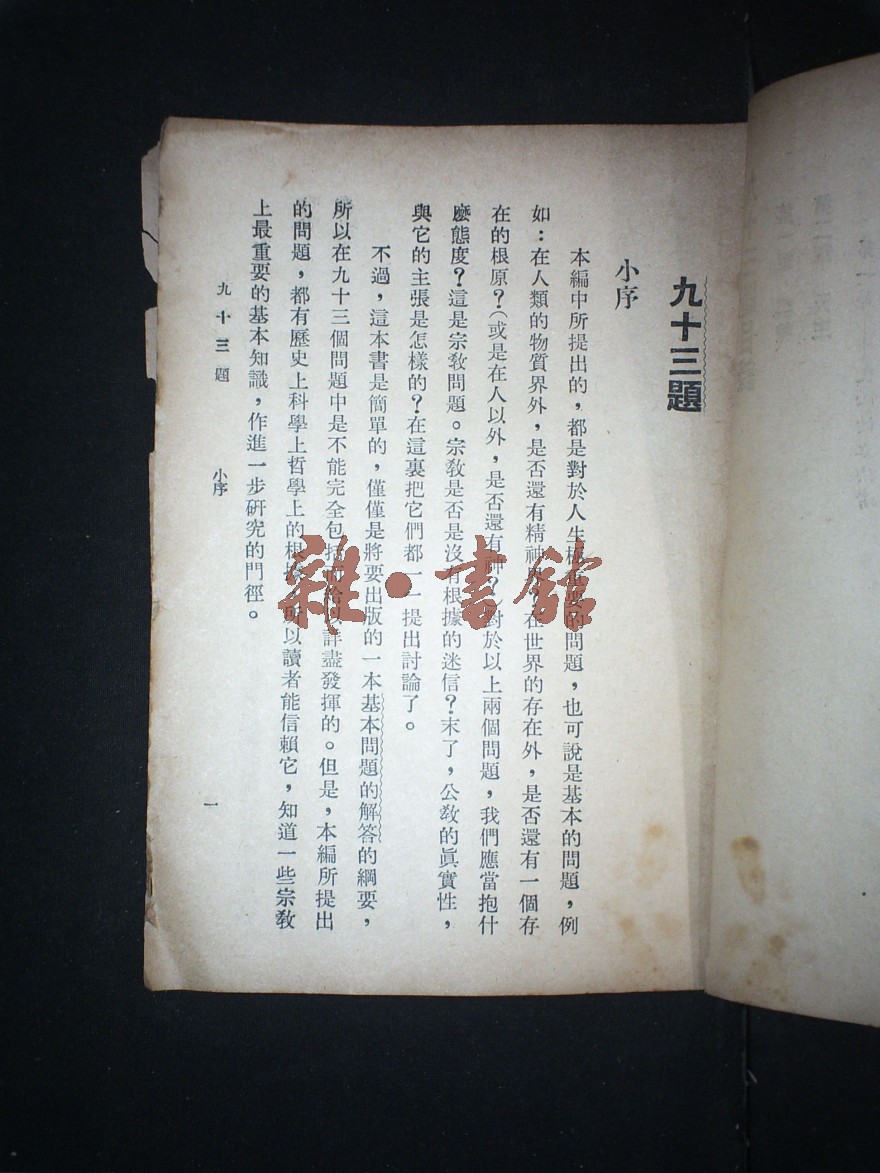 九十三題
小序
本編中所提出的，都是對於人生極重要的問題，也可說是基本的問題，例
如：在人類的物質界外，是否還有精神界？在世界的存在外，是否還有一個存
在的根原？（或是在人以外，是否還有神？）對於以上兩個問題，我們應當抱什
麽態度？這是宗教問題。宗教是否是沒有根據的迷信？末了，公教的眞實性，
與它的主張是怎樣的？在這裏把它們都一一提出討論了。
不過，這本書是簡單的，僅僅是將要出版的一本基本問題的解答的綱要，
所以在九十三個問題中是不能完全包括詳盡發揮的。但是，本編所提出
的問題，都有歷史上科學上哲學上的根據，所以讀者能信賴它，知道一些宗教
上最重要的基本知識，作進一步研究的門徑。
九十三題 小序 一
雜·書館